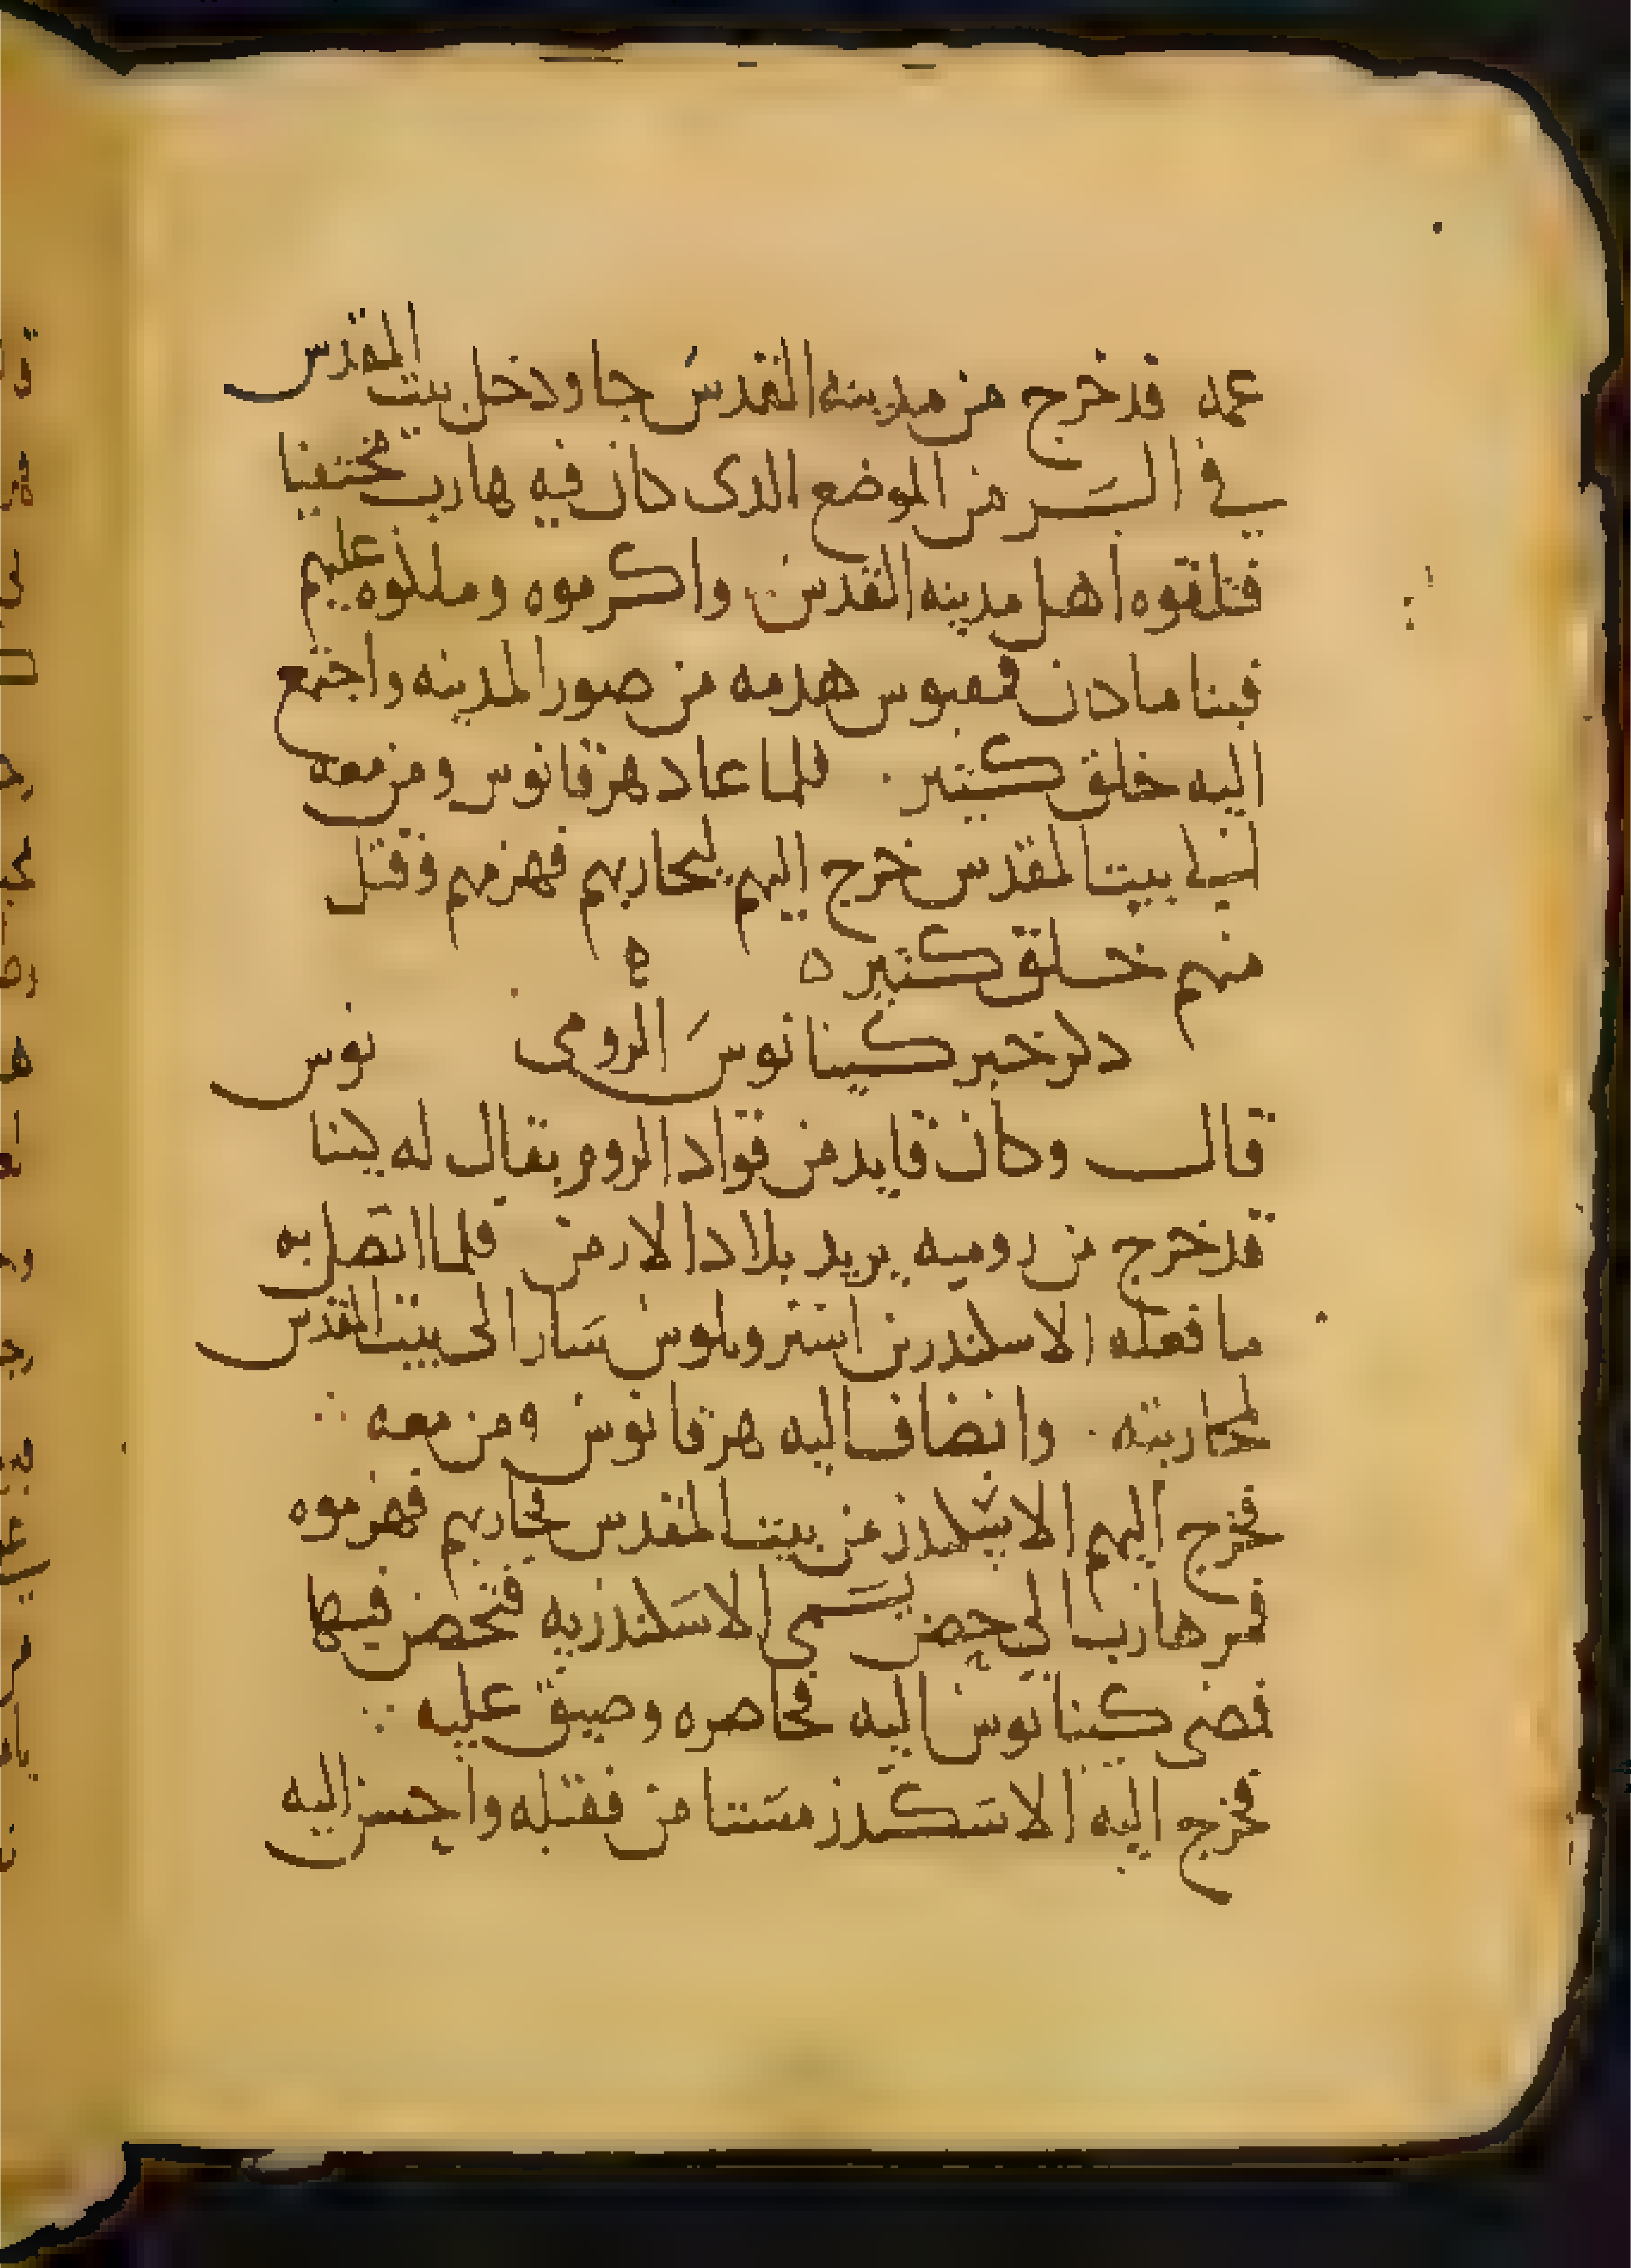 عمه قد خرج من مدينه القدس جا ودخل بيت المقدس
في السر من الموضع الدى كان فيه هارب مختفيا
فتلقوه اهل مدينه القدس واكرموه وملكوه عليهم
فبنا ما كان فمفيوس هدمه من صور المدينه واجتمع
اليه خلق كثير . فلما عاد هرقانوس ومن معه
الى بيت المقدس خرج اليهم ليحاربهم فهزمهم وقتل
منهم خلق كتير ه
دكر خبر كينانوس الرومى
قال وكان قايد من قواد الروم يقال له كينانوس
قد خرج من روميه يريد بلاد الارمن فلما اتصل به
ما فعله الاسكندر بن استروبلوس سار الى بيت المقدس
لمحاربته . وانضاف اليه هرقانوس ومن معه
فخرج اليهم الاسكندر من بيت المقدس فحاربهم فهزموه
فمر هارب الي حصن يسمى الاسكندريه فتحصن فيها
فمضى كينانوس اليه فحاصره وضيق عليه
فخرج اليه الاسكدر مستامن فقبله واحسن اليه